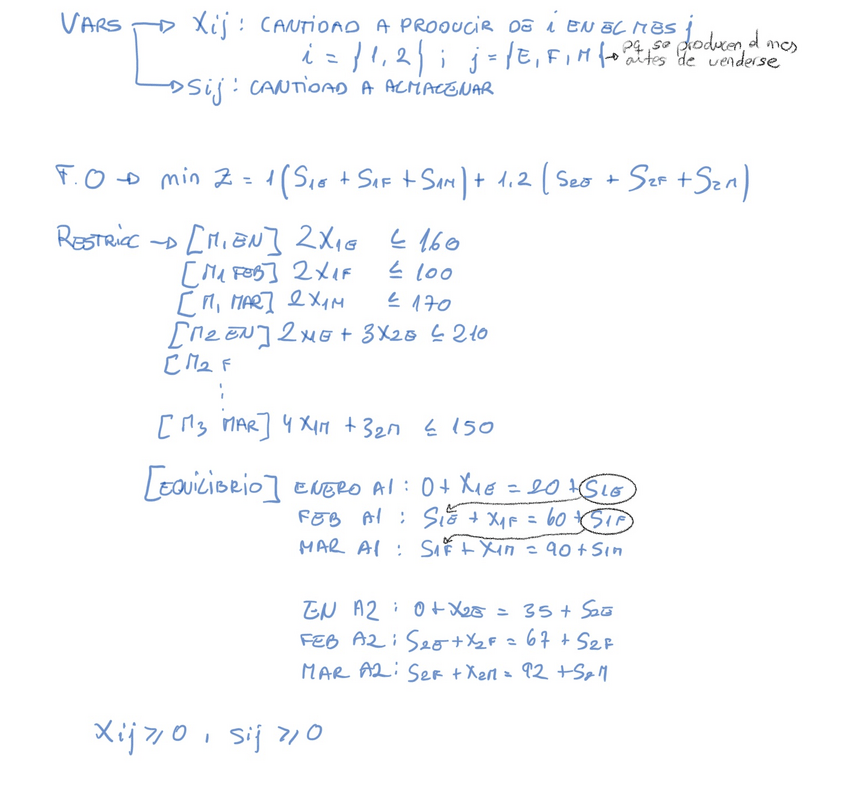 VARS → Xij : CANTIDAD A PRODUCIR DE i EN EL MES j
i = {1, 2} ; j = {E, F, M} → pq se producen el mes antes de venderse
→ Sij : CANTIDAD A ALMACENAR
F.O → min Z = 1(S1E + S1F + S1M) + 1.2 (S2E + S2F + S2M)
RESTRICC → [M1 EN] 2X1E ≤ 160
[M1 FEB] 2X1F ≤ 100
[M1 MAR] 2X1M ≤ 170
[M2 EN] 2X1E + 3X2E ≤ 210
[M2 F
⋮
[M3 MAR] 4X1M + 32M ≤ 150
[EQUILIBRIO] ENERO A1 : 0 + X1E = 20 + S1E
FEB A1 : S1E + X1F = 60 + S1F
MAR A1 : S1F + X1M = 90 + S1M
EN A2 : 0 + X2E = 35 + S2E
FEB A2 : S2E + X2F = 67 + S2F
MAR A2 : S2F + X2M = 92 + S2M
Xij ≥ 0 , Sij ≥ 0